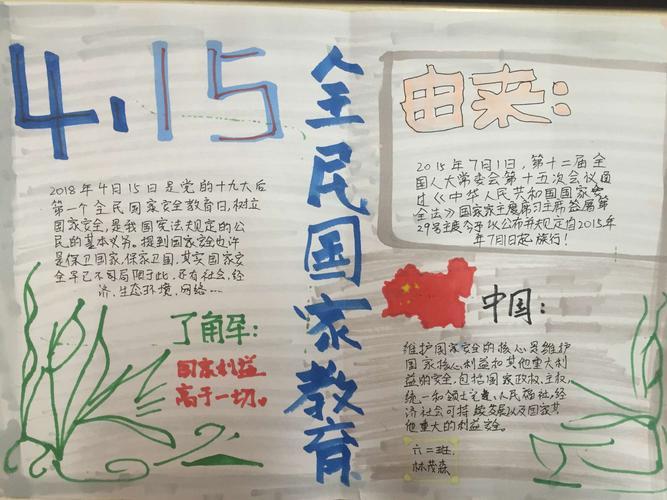 4.15
2018年4月15日是党的十九大后
第一个全民国家安全教育日,树立
国家安全,是我国宪法规定的公
民的基本义务。提到国家安全也许
是保卫国家,保家卫国,其实国家安
全早已不局限于此,还有社会,经
济,生态环境,网络……
了解:
国家利益
高于一切。
全民国家教育
由来:
2015年7月1日,第十二届全
国人大常委会第十五次会议通
过《中华人民共和国国家安
全法》国家主席习主席签署第
29号主席令予以公布并规定自2015年
7月1日起施行!
中国:
维护国家安全的核心是维护
国家核心利益和其他重大利
益的安全,包括国家政权、主权、
统一和领土完整、人民福祉、经
济社会可持续发展以及国家其
他重大的利益安全。
六二班.
林茂森